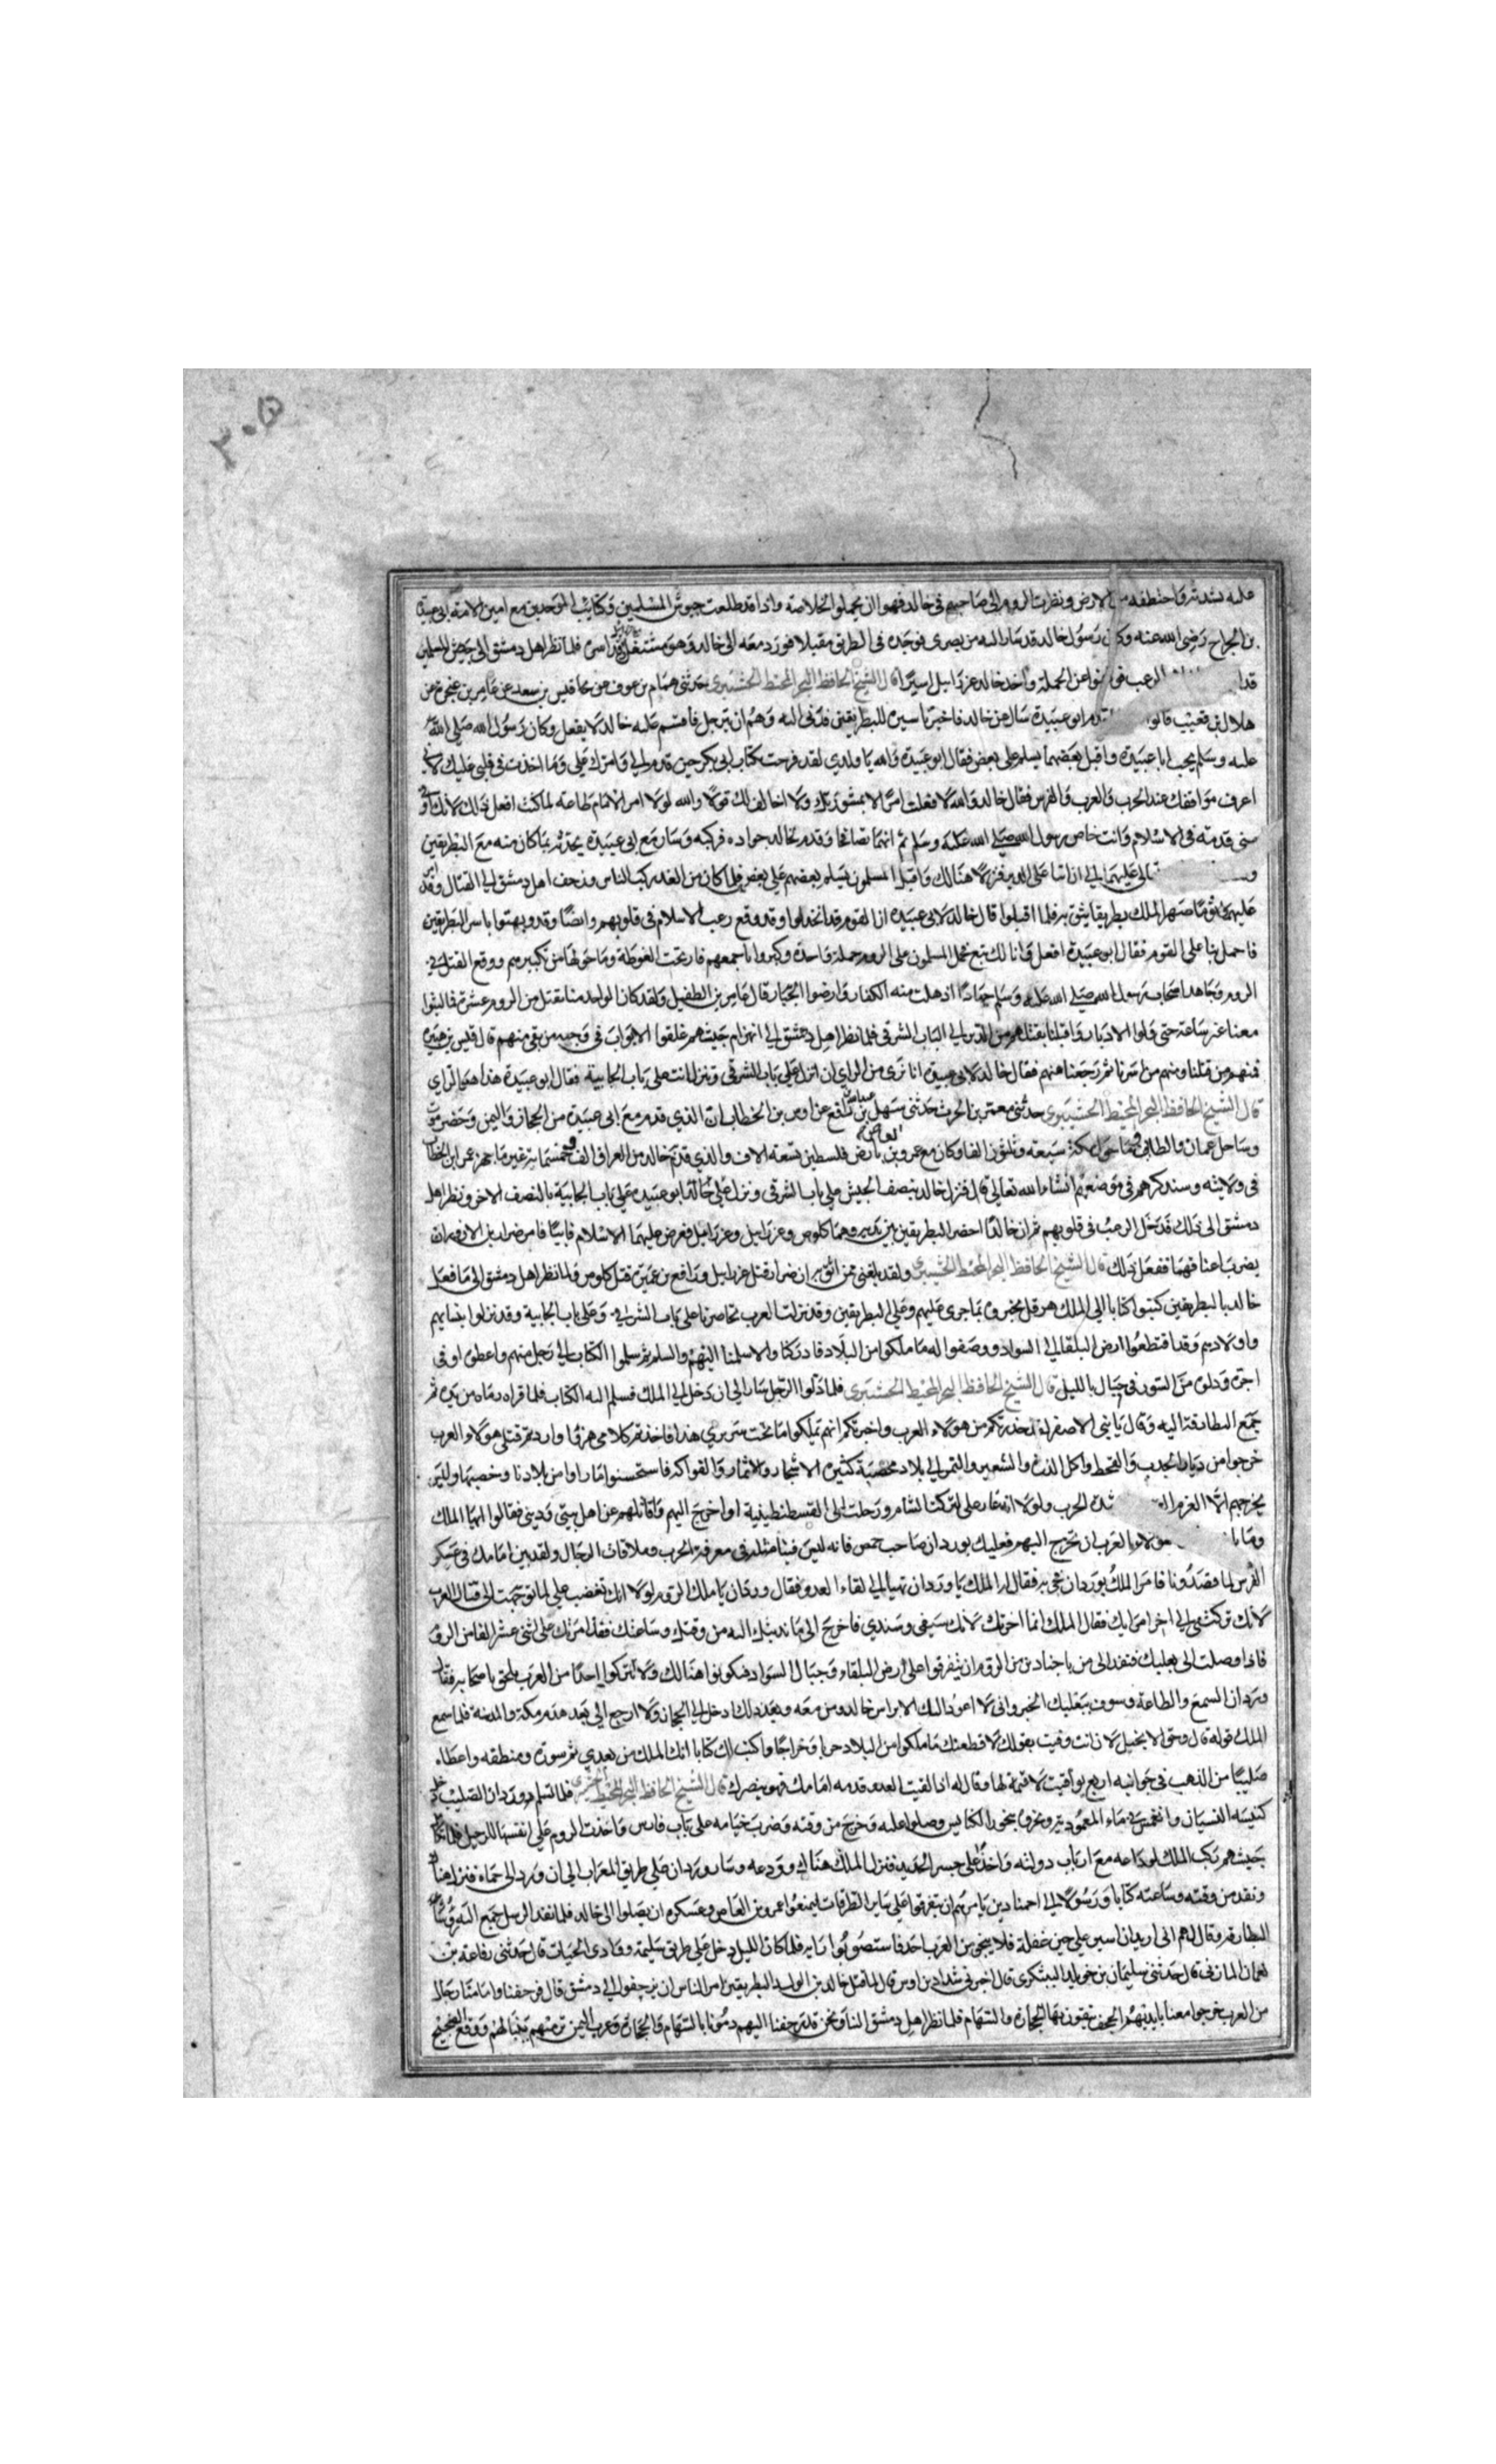 ٢٠٥
عليه شد ثم واختطفه من الارض ونظرت الروم الى صاحبهم في خالد فهموا ان يحملوا لخلاصه واذا قد طلعت جيوش المسلمين وكتايب الموحدين مع امين الامة ابي عبيدة
بن الجراح رضي الله عنه وكان رسول خالد قد سار اليه من بصرى فوجده في الطريق مقبلا فورد معه الى خالد وهو مشتغل اسره فلما نظر اهل دمشق الى جيش المسلمين
قد الرعب في عن الحملة واخذ خالد عزرابيل اسيرا قال الشيخ الحافظ البحر المحيط حدثني همام بن عوف عن قيس بن سعد عن عامر بن عن
هلال بن قعيب قالوا ابو عبيدة سال عن خالد فاخبر باسيره للبطريقين فدنى اليه وهم ان يترجل فاقسم عليه خالد لا يفعل وكان رسول الله صلى الله
عليه وسلم يحب ابا عبيدة واقبل بعضهما يسلم على بعض فقال ابو عبيدة والله يا ولدي لقد فرحت بكتاب ابي بكر حين قدم الي وامرك علي وما اخذت في قلبي عليك لاني
اعرف مواقفك عند الحرب والعرب والفرس فقال خالد والله لا فعلت امرا الا بمشورتك ولا اخالف لك قولا والله لولا امر الامام طاعة لما كنت افعل ذلك لانك
قدمته في الاسلام وانت خاص رسول الله صلى الله عليه وسلم ثم انهما تصافحا وقدم لخالد جواده فركبه وسار مع ابي عبيدة يحدثه بما كان منه مع البطريقين
عليهما الى ان اتيا على الدير فنزلا هنالك واقبل المسلمون يسلم بعضهم على بعض فلما كان من الغد ركب الناس وزحف اهل دمشق الى القتال وقد
عليهم صهر الملك بطريقا يثق به فلما اقبلوا قال خالد لابي عبيدة ان القوم قد انخذلوا وقد وقع رعب الاسلام في قلوبهم وايضا وقد بهتوا باسر البطريقين
فاحمل بنا على القوم فقال ابو عبيدة افعل وانا لك تبع فحمل المسلمون على الروم حملة واحدة وكبروا باجمعهم فارتجت الغوطة وما حولها من تكبيرهم ووقع القتل في
الروم وجاهد اصحاب رسول الله صلى الله عليه وسلم جهادا اذهلت منه الكفار وارضوا الجبار قال عامر بن الطفيل ولقد كان الواحد منا يقتل من الروم عشرة فما لبثوا
معنا غير ساعة حتى ولوا الادبار واقبلنا نقتلهم من الدير الى الباب الشرقي فلما نظر اهل دمشق الى انهزام جيشهم غلقوا الابواب في وجه من بقي منهم قال قيس بن هبيرة
فمنهم من قتلنا ومنهم من اسرنا ثم رجعنا عنهم فقال خالد لابي عبيدة انا نرى من الراي ان انزل على باب الشرقي وتنزل انت على باب الجابية فقال ابو عبيدة هذا هو الراي
قال الشيخ الحافظ البحر المحيط حدثني معتمر بن الحرث حدثني سهل بن عبد الله بن نافع عن اوس بن الخطاب ان الذي قدم مع ابي عبيدة من الحجاز واليمن وحضرموت
وساحل عمان والطائف وما حول مكة سبعة وثلثون الفا وكان مع عمرو بن العاص بارض فلسطين تسعة الاف والذي قدم خالد من العراق الف وخمسماية غير ما جهز عمر ابن الخطاب
في ولايته وسنذكرهم في موضعهم انشاء الله تعالى قال فنزل خالد بنصف الجيش على باب الشرقي ونزل ابو عبيدة على باب الجابية بالنصف الاخر ونظر اهل
دمشق الى ذلك فدخل الرعب في قلوبهم ثم ان خالدا احضر البطريقين بين يديه وهما كلوس وعزرابيل فعرض عليهما الاسلام فابيا فامر ضرار بن الازور ان
يضرب اعناقهما ففعل ذلك قال الشيخ الحافظ البحر المحيط ولقد بلغني ممن اثق به ان ضرار قتل عزرابيل ورافع بن عميرة قتل كلوس ولما نظر اهل دمشق الى ما فعل
خالد بالبطريقين كتبوا كتابا الى الملك هرقل يخبروه بما جرى عليهم وعلى البطريقين وقد نزلت العرب تحاصرنا على باب الشرقي وعلى باب الجابية وقد نزلوا بنسايهم
واولادهم وقد اقتطعوا ارض البلقا الى السواد ووصفوا له ما ملكوا من البلاد فادركنا والا سلمنا اليهم والسلم ثم سلموا الكتاب الى رجل منهم واعطوه اوفى
اجرة ودلوه من السور في حبال بالليل قال الشيخ الحافظ البحر المحيط فلما دلوا الرجل سار الى ان دخل الى الملك فسلم اليه الكتاب فلما قراه رماه من يده ثم
جمع البطارقة اليه وقال يا بني الاصفر لقد حذرتكم من هولاء العرب واخبرتكم انهم تملكوا ما تحت سريري هذا فاخذتم كلامي هزوا واردتم قتلي هولاء العرب
خرجوا من ديار الجدب والقحط واكل الذرة والشعير والتمر الى بلاد مخصبة كثيرة الاشجار والاثمار والفواكه فاستحسنوا ما راوا من بلادنا وخصبها وليس
يخرجهم الا العزم شدة الحرب ولولا ان عار علي لتركت الشام ورحلت الى القسطنطينية او اخرج اليهم واقاتلهم عن اهل بيتي وديني فقالوا ايها الملك
العرب ان تخرج اليهم فعليك بوردان صاحب حمص فانه ليس فينا مثله في معرفة الحرب وملاقات الرجال ولقد بين امامك في عسكر
الفرس لما قصدونا فامر الملك بوردان فقال له الملك يا وردان تهيا الى لقاء العدو فقال وردان يا ملك الروم لولا انك تغضب علي لما توجهت الى قتال العرب
لانك تركتني الى اخر امرايك فقال الملك انما اخرتك لانك سيفي وسندي فاخرج الى ما ندبتك اليه من وقتك وساعتك فقد امرتك على اثني عشر الفا من الروم
فاذا وصلت الى بعلبك فنفذ الى من باجنادين من الروم ان يتفرقوا على ارض البلقاء وجبال السواد فيكونوا هنالك ولا تتركوا احدا من العرب يلحق باصحابه فقال
وردان السمع والطاعة وسوف يبلغك الخبر واني لا اعود اليك الا براس خالد ومن معه وبعد ذلك ادخل الى الحجاز ولا ارجع الى بعد هدم مكة والمدينة فلما سمع
الملك قوله قال وحق الانجيل لان انت وفيت بقولك لاقطعنك ما ملكوا من البلاد حربا وخراجا واكتب لك كتابا انك الملك من بعدي ثم سوره ومنطقه واعطاه
صليبا من الذهب في جوانبه اربع يواقيت لا قيمة لها وقال له اذا لقيت العدو قدمه امامك فهو ينصرك قال الشيخ الحافظ البحر المحيط فلما تسلم وردان الصليب دخل
كنيسة القسيان وانغمس في ماء المعمودية وبخروه ببخور الكنايس وصلوا عليه وخرج من وقته وضرب خيامه على باب فارس واخذت الروم على انفسها للرحيل فلما
جيشهم ركب الملك لوداعه مع ارباب دولته واخذ على جسر الحديد فنزل الملك هناك وودعه وسار وردان على طريق المعراب الى ان ورد الى حماه فنزل هناك
ونفذ من وقته وساعته كتابا ورسولا الى اجنادين يامرهم ان يتفرقوا على ساير الطرقات ليمنعوا عمرو بن العاص وعسكره ان يصلوا الى خالد فلما نفذ الرسل جمع اليه
البطارقة وقال لهم اني اريد ان اسير على حين غفلة فلا ينجو من العرب احد فاستصوبوا رايه فلما كان الليل دخل على طريق سليمة ووادي الحيات قال حدثني رفاعة بن
نعمان المازني قال حدثني سليمان بن خويلد اليشكري قال اخبرني شداد بن اوس قال لما قتل خالد بن الوليد البطريقين امر الناس ان يزحفوا الى دمشق قال فزحفنا واما منا رجال
من العرب خرجوا معنا بايديهم الحجف يتقون بها الحجارة والسهام فلما نظر اهل دمشق الينا ونحن قد زحفنا اليهم رمونا بالسهام والحجارة وعرب اليمن ترميهم بنبالهم ووقع الضجيج